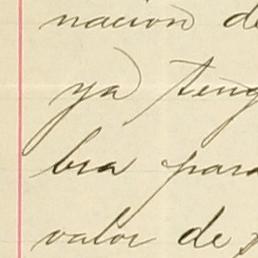 nacion de
ya teng
bra para
valor de